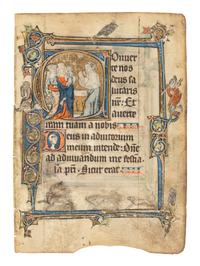 Conuer
te nos
deus sa
lutaris
nr̄. Et
auerte
iram tuam a nobis
Deus in adiutorium
meum intende. Dn̄e
ad adiuuandum me festi
na. pri. Sicut erat